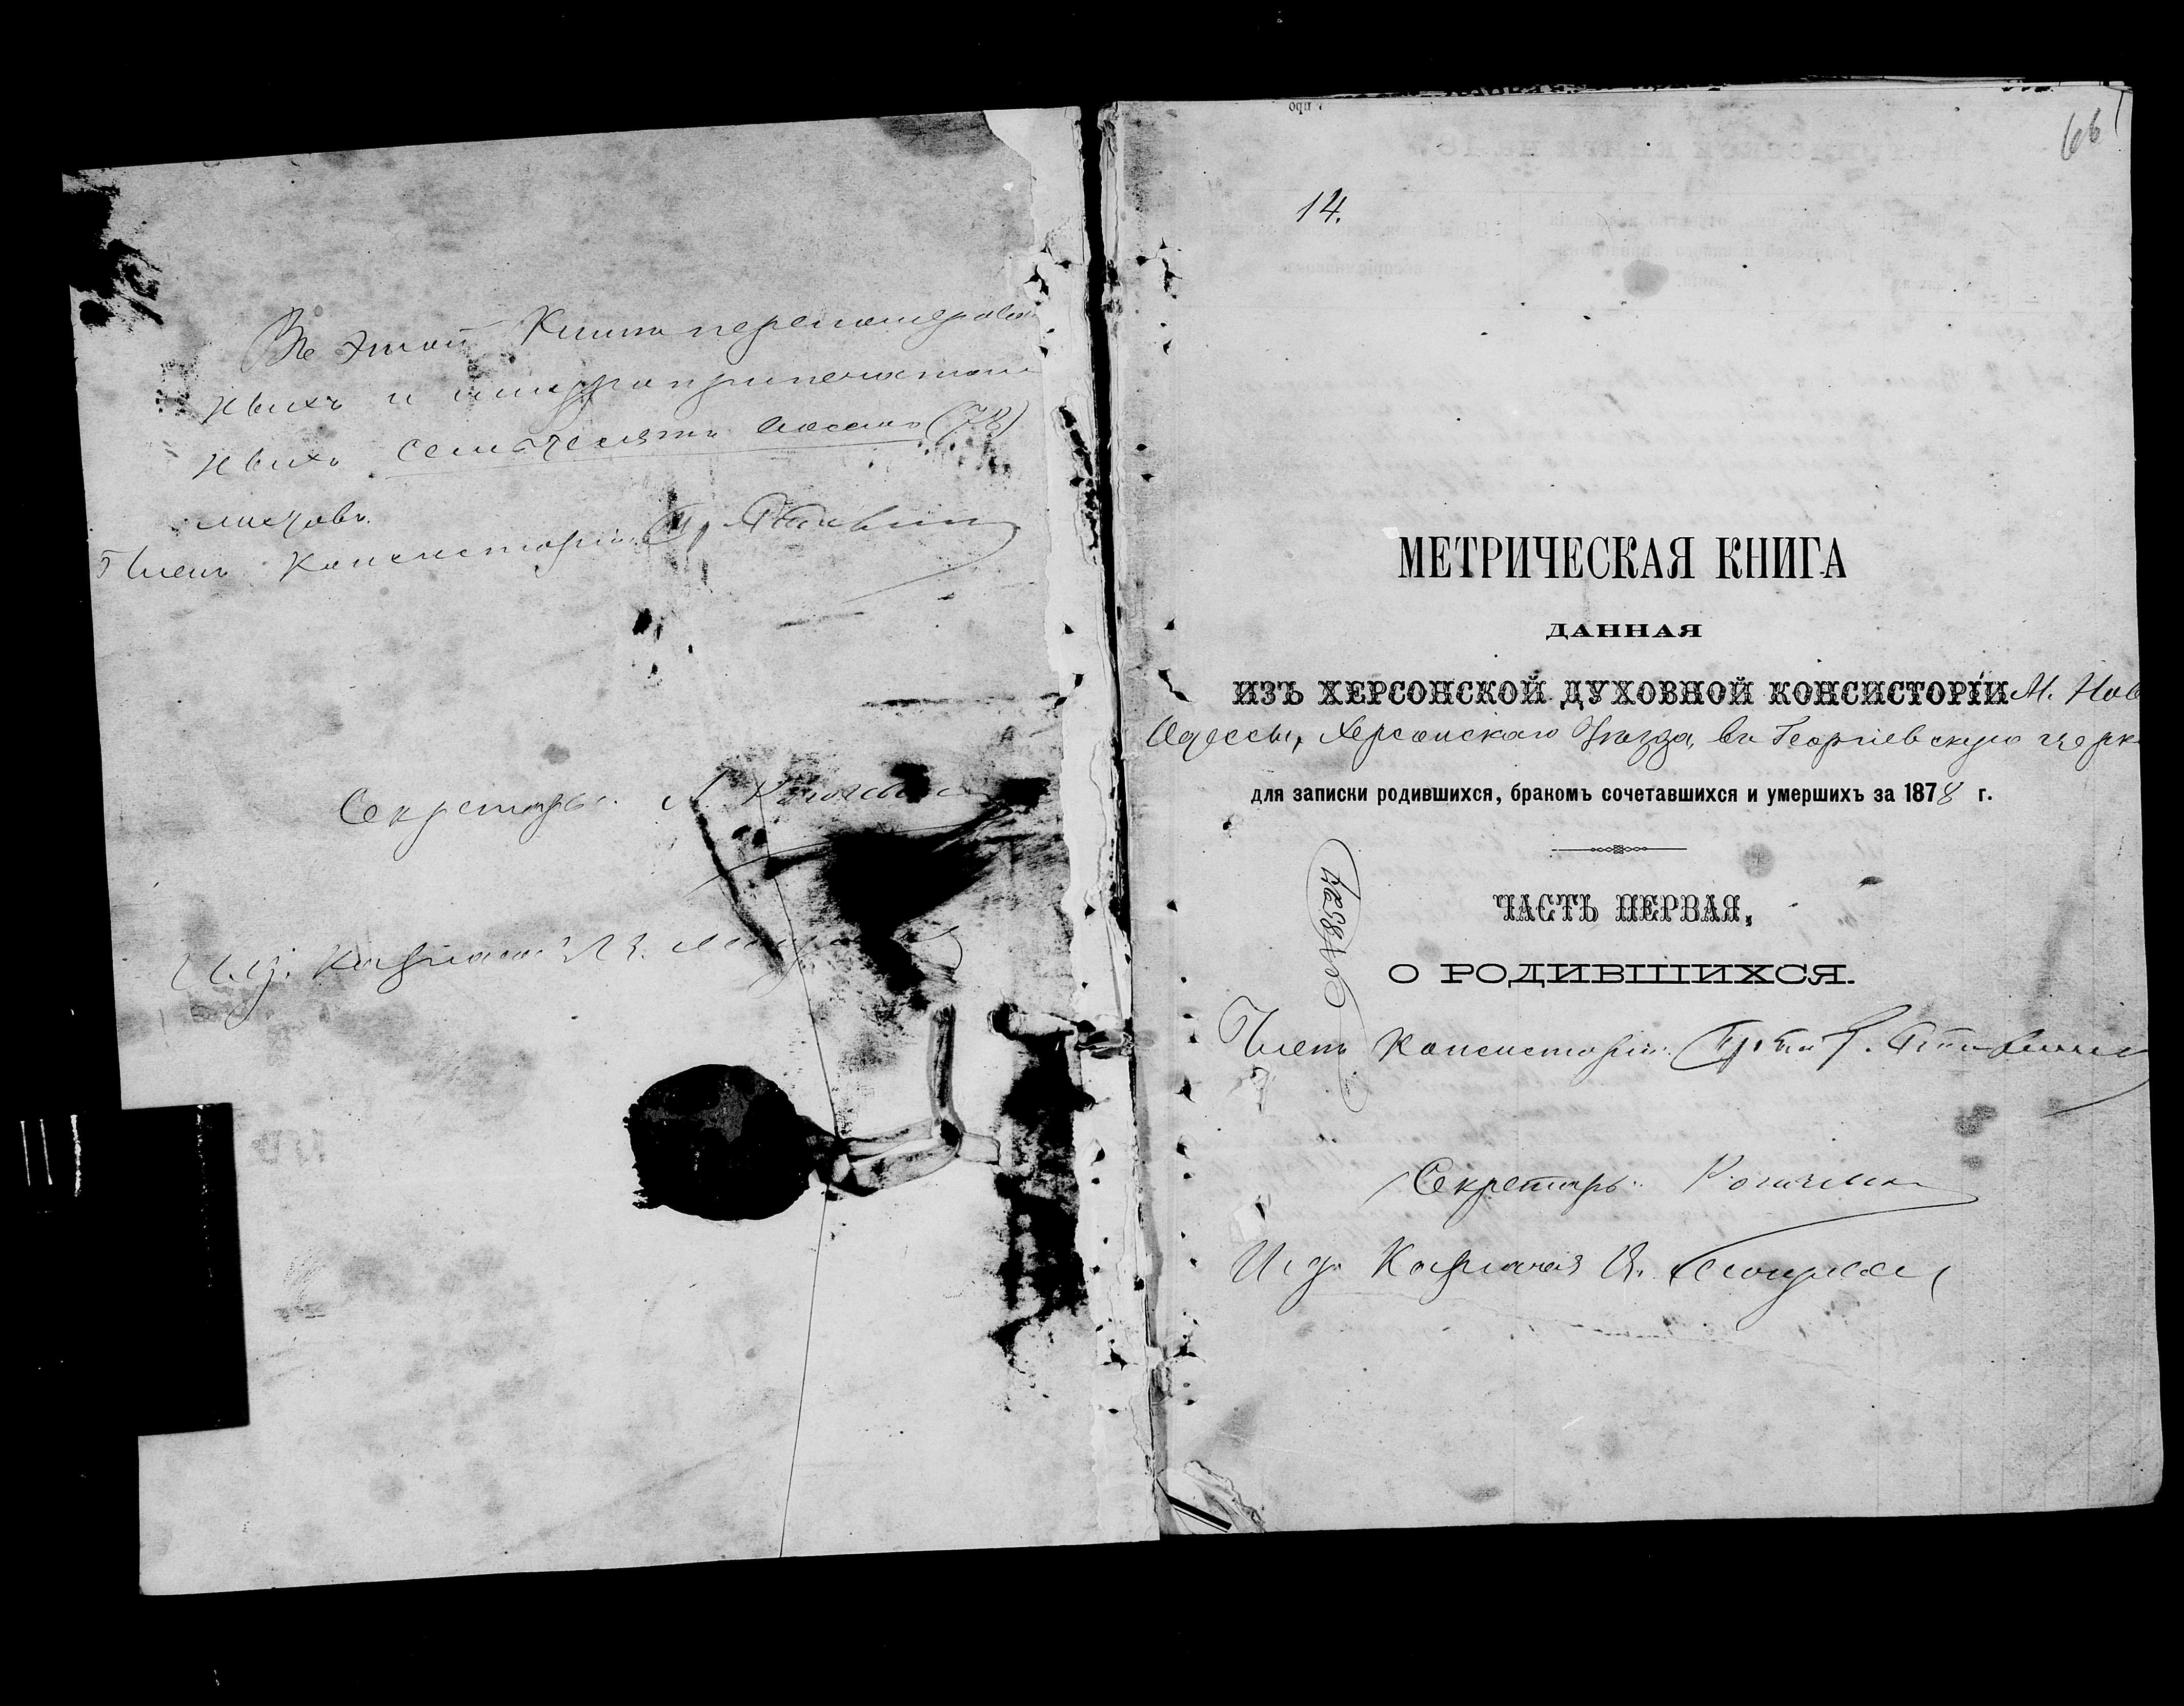 Въ этой Книгѣ перенумерован
ныхъ и шнуроприпечатан
ныхъ семьдесятъ восемь (78)
листовъ.
Членъ Консисторіи
Секретарь
И. д. Казначея
66
14.
МЕТРИЧЕСКАЯ КНИГА
ДАННАЯ
ИЗЪ ХЕРСОНСКОЙ ДУХОВНОЙ КОНСИСТОРІИ М. Нов
Одессы, Херсонскаго Уѣзда, въ Георгіевскую церк
для записки родившихся, бракомъ сочетавшихся и умершихъ за 1878 г.
ЧАСТЬ ПЕРВАЯ,
О РОДИВШИХСЯ.
Членъ Консисторіи
Секретарь
И. д. Казначея